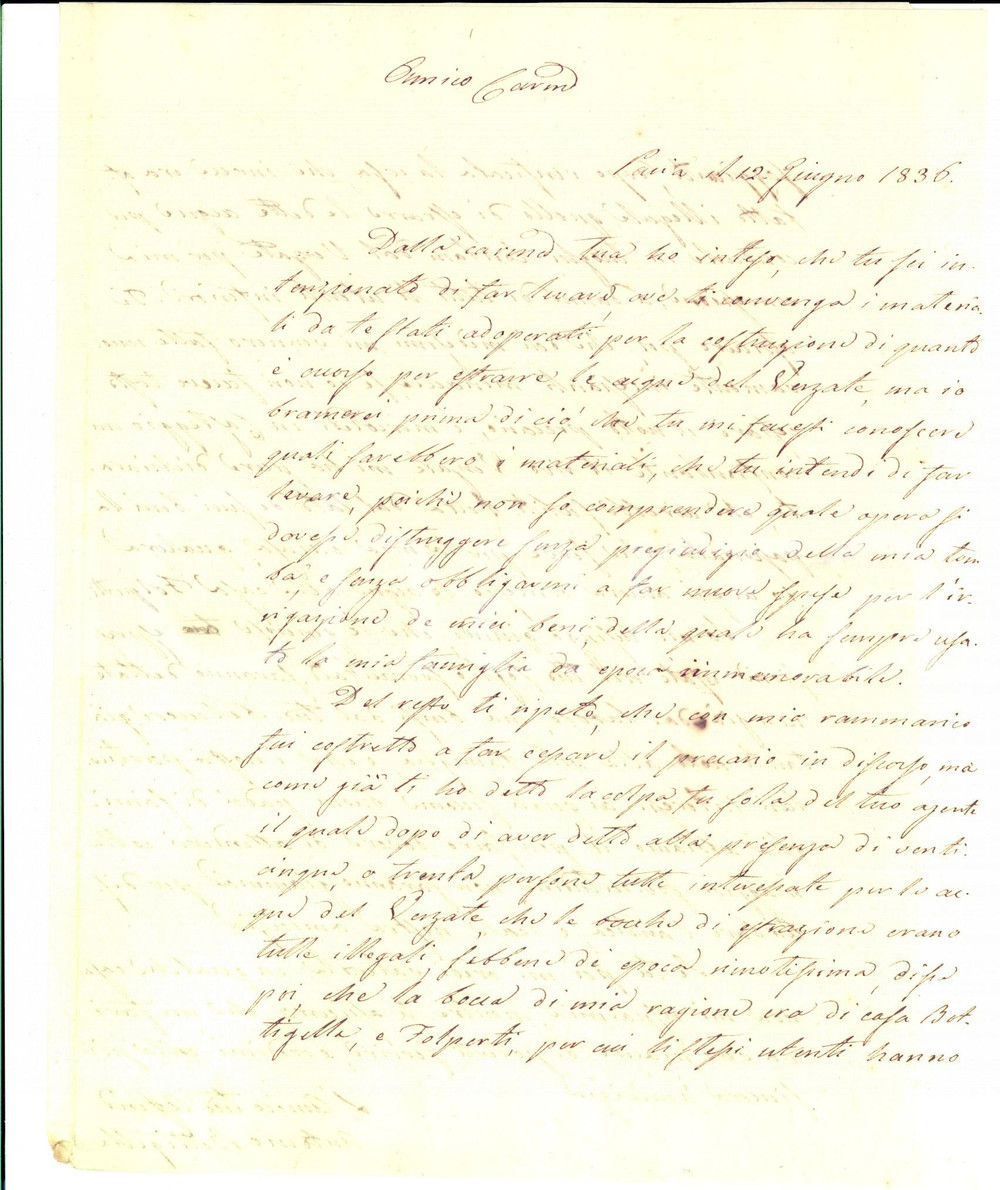 Amico Carmo
Pavia il 12: Giugno 1836.
Dalla carma tua ho inteso, che tu sei in-
tenzionato di far levare, ove ti convenga i materia-
li da te stati adoperati, per la costruzione di quanto
è occorso per estrarre le acque del Verzate, ma io
bramerei prima di ciò, che tu mi facesti conoscere
quali sarebbero i materiali, che tu intendi di far
levare, poichè non so comprendere quale opera si
dovesse distruggere senza pregiudizio della mia tem-
ba, e senza obbligarmi a far nuove spese per l'ir-
rigazione de miei beni, della quale ha sempre usa-
to la mia famiglia da epoca immemorabile.
Del resto ti ripeto, che con mio rammarico
fui costretto a far cessare il precario in discorso, ma
come già ti ho detto la colpa fu sola del tuo agente
il quale dopo di aver detto alla presenza di venti-
cinque, o trenta persone tutte interessate per le ac-
que del Verzate, che le bocche di estrazione erano
tutte illegali, sebbene di epoca rimotissima, disse
poi, che la bocca di mia ragione era di casa Bot-
tigella, e Folperti, per cui li stessi utenti hanno